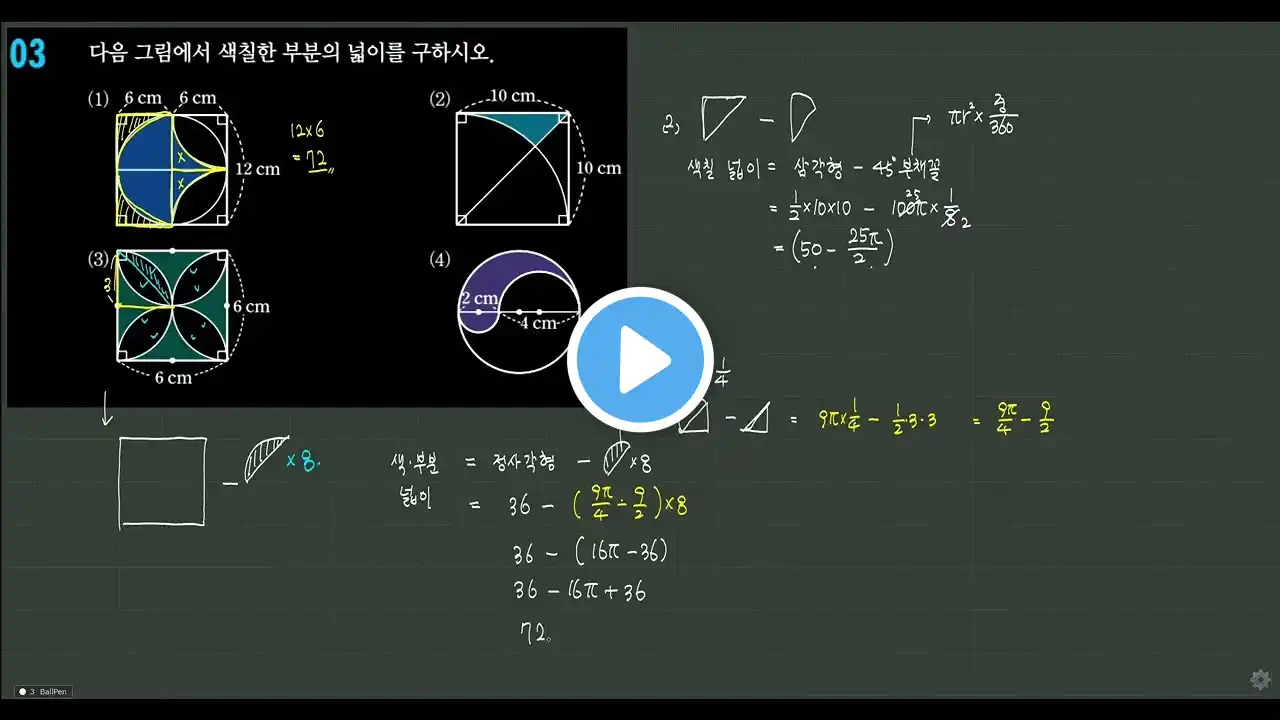 03 다음 그림에서 색칠한 부분의 넓이를 구하시오.
(1) 6 cm 6 cm
12 cm
x
x
12×6
= 72
(2) 10 cm
10 cm
(3) 3
6 cm
6 cm
(4) 2 cm
4 cm
(2) −
πr²× /360
색칠 넓이 = 삼각형 − 45° 부채꼴
= 1/2 ×10×10 − 100π × 1/8
25 2
= (50 − 25π/2)
1/4
− = 9π×1/4 − 1/2·3·3 = 9π/4 − 9/2
− ×8.
색·부분 = 정사각형 − ×8
넓이 = 36 − (9π/4 − 9/2)×8
36 − (16π − 36)
36 − 16π + 36
72
3 BallPen